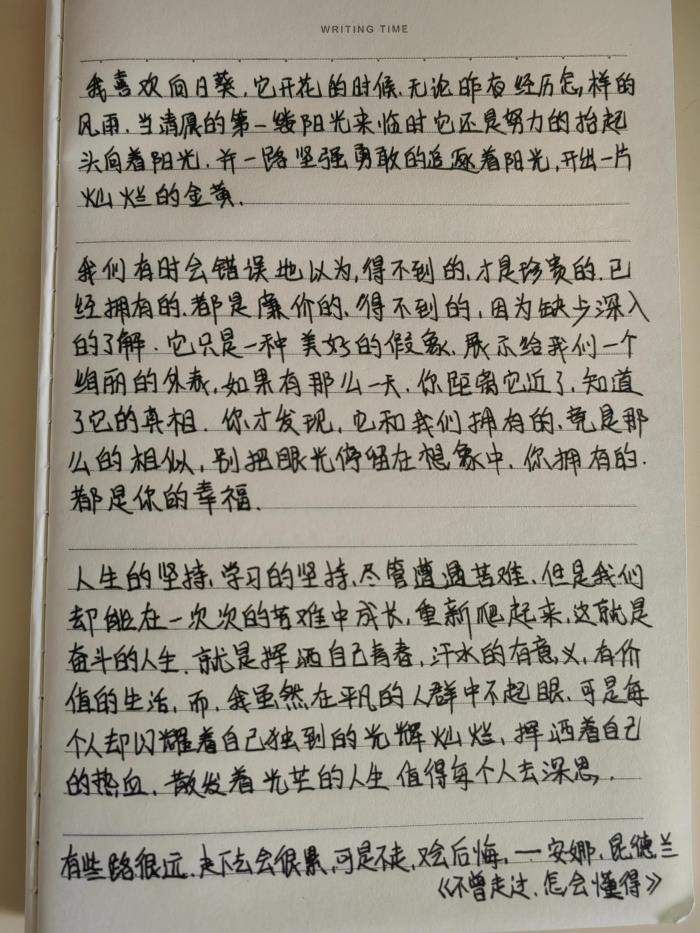 WRITING TIME
我喜欢向日葵,它开花的时候,无论昨夜经历怎样的
风雨,当清晨的第一缕阳光来临时它还是努力的抬起
头向着阳光,并一路坚强勇敢的追逐着阳光,开出一片
灿烂的金黄.
我们有时会错误地以为,得不到的,才是珍贵的,已
经拥有的,都是廉价的,得不到的,因为缺少深入
的了解.它只是一种美好的假象,展示给我们一个
绚丽的外表,如果有那么一天,你距离它近了,知道
了它的真相.你才发现,它和我们拥有的,竟是那
么的相似,别把眼光停留在想象中,你拥有的.
都是你的幸福.
人生的坚持,学习的坚持,尽管遭遇苦难,但是我们
却能在一次次的苦难中成长,重新爬起来,这就是
奋斗的人生,就是挥洒自己青春,汗水的有意义,有价
值的生活,而,我虽然在平凡的人群中不起眼,可是每
个人却闪耀着自己独到的光辉灿烂,挥洒着自己
的热血,散发着光芒的人生值得每个人去深思.
有些路很远,走下去会很累,可是不走,会后悔,一安娜.昆德兰
《不曾走过,怎会懂得》